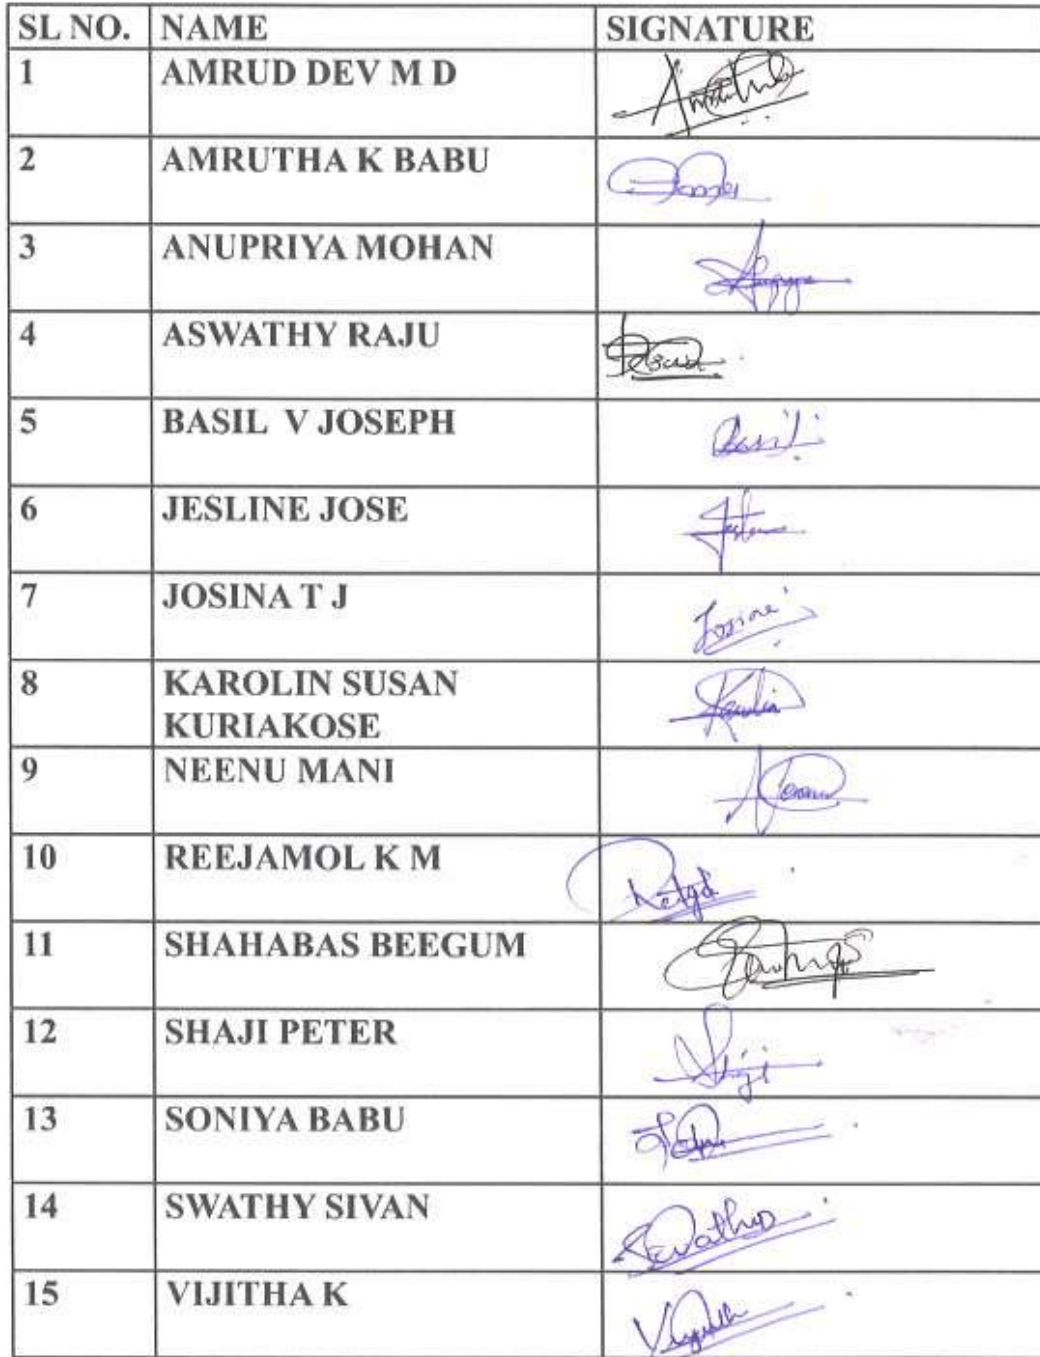 SL NO. NAME SIGNATURE
1 AMRUD DEV M D
2 AMRUTHA K BABU
3 ANUPRIYA MOHAN
4 ASWATHY RAJU
5 BASIL V JOSEPH Basil
6 JESLINE JOSE
7 JOSINA T J Josina
8 KAROLIN SUSAN
KURIAKOSE Karolin
9 NEENU MANI Neenu
10 REEJAMOL K M
11 SHAHABAS BEEGUM
12 SHAJI PETER Shaji
13 SONIYA BABU
14 SWATHY SIVAN Swathy
15 VIJITHA K